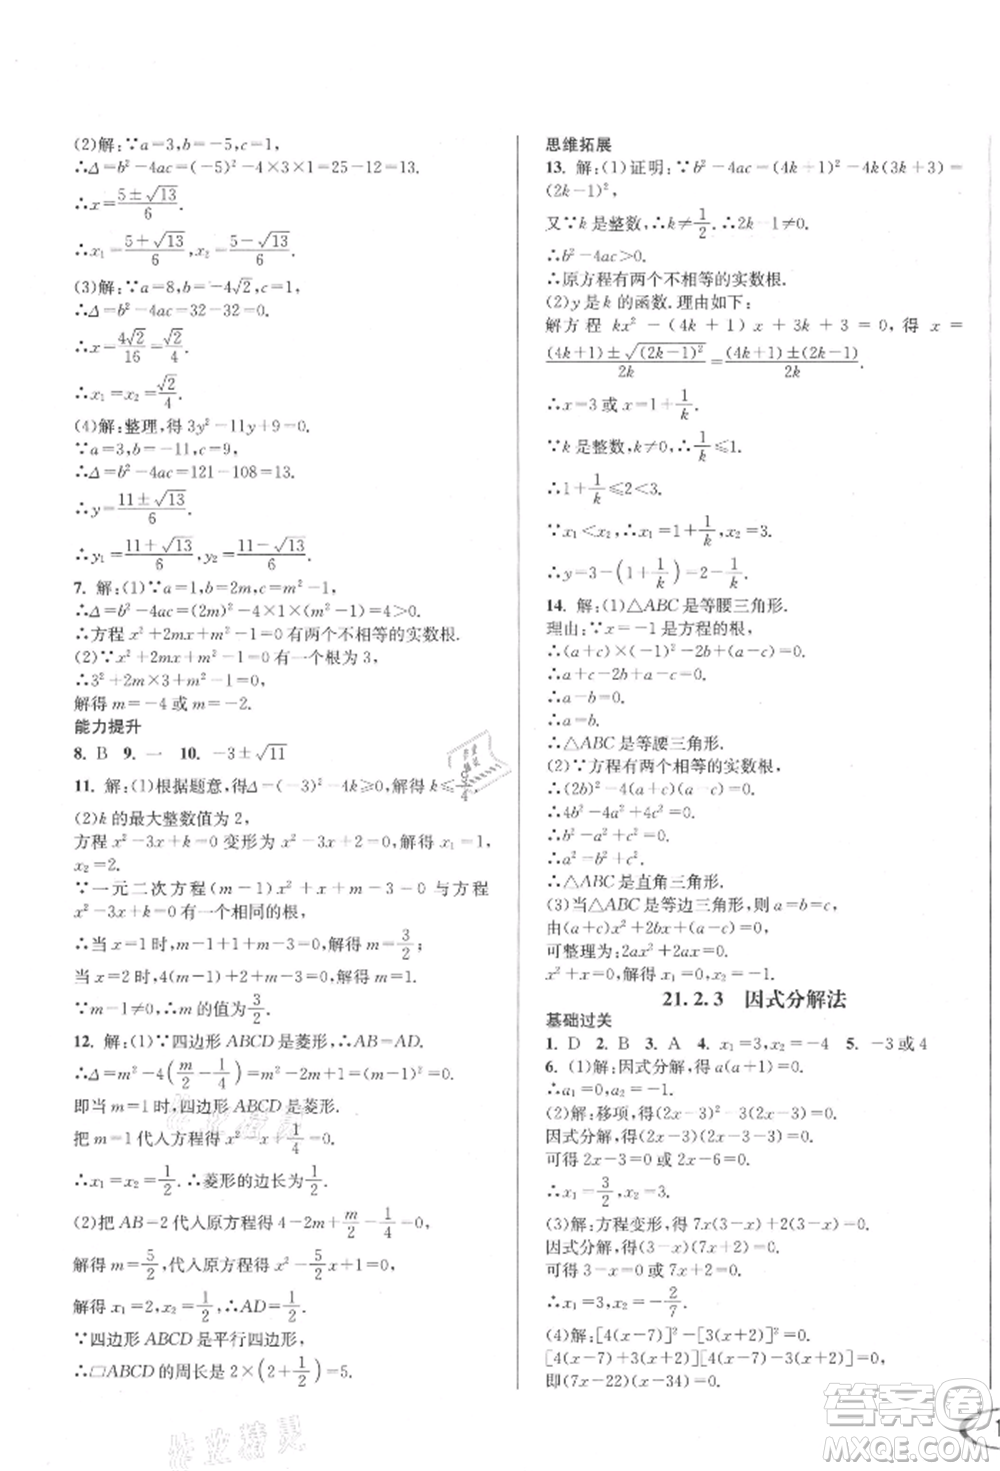 (2)解:∵a=3,b=-5,c=1,
∴Δ=b²-4ac=(-5)²-4×3×1=25-12=13.
∴x=(5±√13)/6.
∴x₁=(5+√13)/6,x₂=(5-√13)/6.
(3)解:∵a=8,b=-4√2,c=1,
∴Δ=b²-4ac=32-32=0.
∴x=4√2/16=√2/4.
∴x₁=x₂=√2/4.
(4)解:整理,得3y²-11y+9=0.
∵a=3,b=-11,c=9,
∴Δ=b²-4ac=121-108=13.
∴y=(11±√13)/6.
∴y₁=(11+√13)/6,y₂=(11-√13)/6.
7. 解:(1)∵a=1,b=2m,c=m²-1,
∴Δ=b²-4ac=(2m)²-4×1×(m²-1)=4>0.
∴方程x²+2mx+m²-1=0有两个不相等的实数根.
(2)∵x²+2mx+m²-1=0有一个根为3,
∴3²+2m×3+m²-1=0.
解得m=-4或m=-2.
能力提升
8. B 9. 一 10. -3±√11
11. 解:(1)根据题意,得Δ=(-3)²-4k≥0,解得k≤9/4.
(2)k的最大整数值为2,
方程x²-3x+k=0变形为x²-3x+2=0,解得x₁=1,
x₂=2.
∵一元二次方程(m-1)x²+x+m-3=0与方程
x²-3x+k=0有一个相同的根,
∴当x=1时,m-1+1+m-3=0,解得m=3/2;
当x=2时,4(m-1)+2+m-3=0,解得m=1;
∵m-1≠0,∴m的值为3/2.
12. 解:(1)∵四边形ABCD是菱形,∴AB=AD.
∴Δ=m²-4(m/2-1/4)=m²-2m+1=(m-1)²=0.
即当m=1时,四边形ABCD是菱形.
把m=1代入方程x²-x+1/4=0,
∴x₁=x₂=1/2.∴菱形的边长为1/2.
(2)把AB=2代入原方程得4-2m+m/2-1/4=0,
解得m=5/2,把m=5/2代入原方程得x²-5/2x+1=0,
解得x₁=2,x₂=1/2,∴AD=1/2.
∵四边形ABCD是平行四边形,
∴□ABCD的周长是2×(2+1/2)=5.
思维拓展
13. 解:(1)证明:∵b²-4ac=(4k+1)²-4k(3k+3)=
(2k-1)²,
又∵k是整数,∴k≠1/2.∴2k-1≠0.
∴b²-4ac>0.
∴原方程有两个不相等的实数根.
(2)y是k的函数.理由如下:
解方程kx²-(4k+1)x+3k+3=0,得x=
((4k+1)±√(2k-1)²)/2k=((4k+1)±(2k-1))/2k.
∴x=3或x=1+1/k.
∵k是整数,k≠0,∴1/k≤1.
∴1+1/k≤2<3.
∵x₁<x₂,∴x₁=1+1/k,x₂=3.
∴y=3-(1+1/k)=2-1/k.
14. 解:(1)△ABC是等腰三角形.
理由:∵x=-1是方程的根,
∴(a+c)×(-1)²-2b+(a-c)=0.
∴a+c-2b+a-c=0.
∴a-b=0.
∴a=b.
∴△ABC是等腰三角形.
(2)∵方程有两个相等的实数根,
∴(2b)²-4(a+c)(a-c)=0.
∴4b²-4a²+4c²=0.
∴b²-a²+c²=0.
∴a²=b²+c².
∴△ABC是直角三角形.
(3)当△ABC是等边三角形时,a=b=c,
由(a+c)x²+2bx+(a-c)=0,
可整理为:2ax²+2ax=0.
x²+x=0,解得x₁=0,x₂=-1.
21.2.3 因式分解法
基础过关
1. D 2. B 3. A 4. x₁=3,x₂=-4 5. -3或4
6. (1)解:因式分解,得a(a-1)=0.
∴a₁=0,a₂=1.
(2)解:移项,得(2x-3)²-2(2x-3)=0.
因式分解,得(2x-3)(2x-3-2)=0.
可得2x-3=0或2x-5=0.
∴x₁=3/2,x₂=5/2.
(3)解:方程变形,得7x(3-x)+2(3-x)=0.
因式分解,得(3-x)(7x+2)=0.
可得3-x=0或7x+2=0.
∴x₁=3,x₂=-2/7.
(4)解:[4(x-7)]²-[3(x+2)]²=0.
[4(x-7)+3(x+2)][4(x-7)-3(x+2)]=0,
即(7x-22)(x-34)=0.
答案卷
MXQE.COM
作业精灵